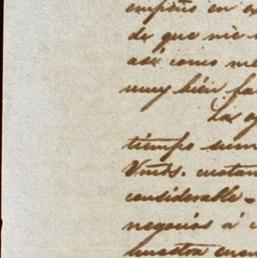 empeño en e
de que me
asi como me
muy bien fa
Las o
tiempo sum
Vmds. cuatan
considerable.
negocios á
nuestra cuen